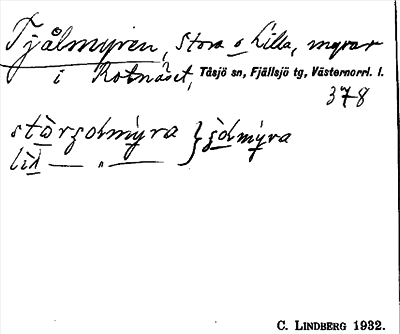 Tjålmyren, Stora o Lilla, myrar
i Rotnäset, Tåsjö sn, Fjällsjö tg, Västernorrl. l.
378
stòrʒolmỳra } ʒòlmỳra
lìl — „ —
C. LINDBERG 1932.